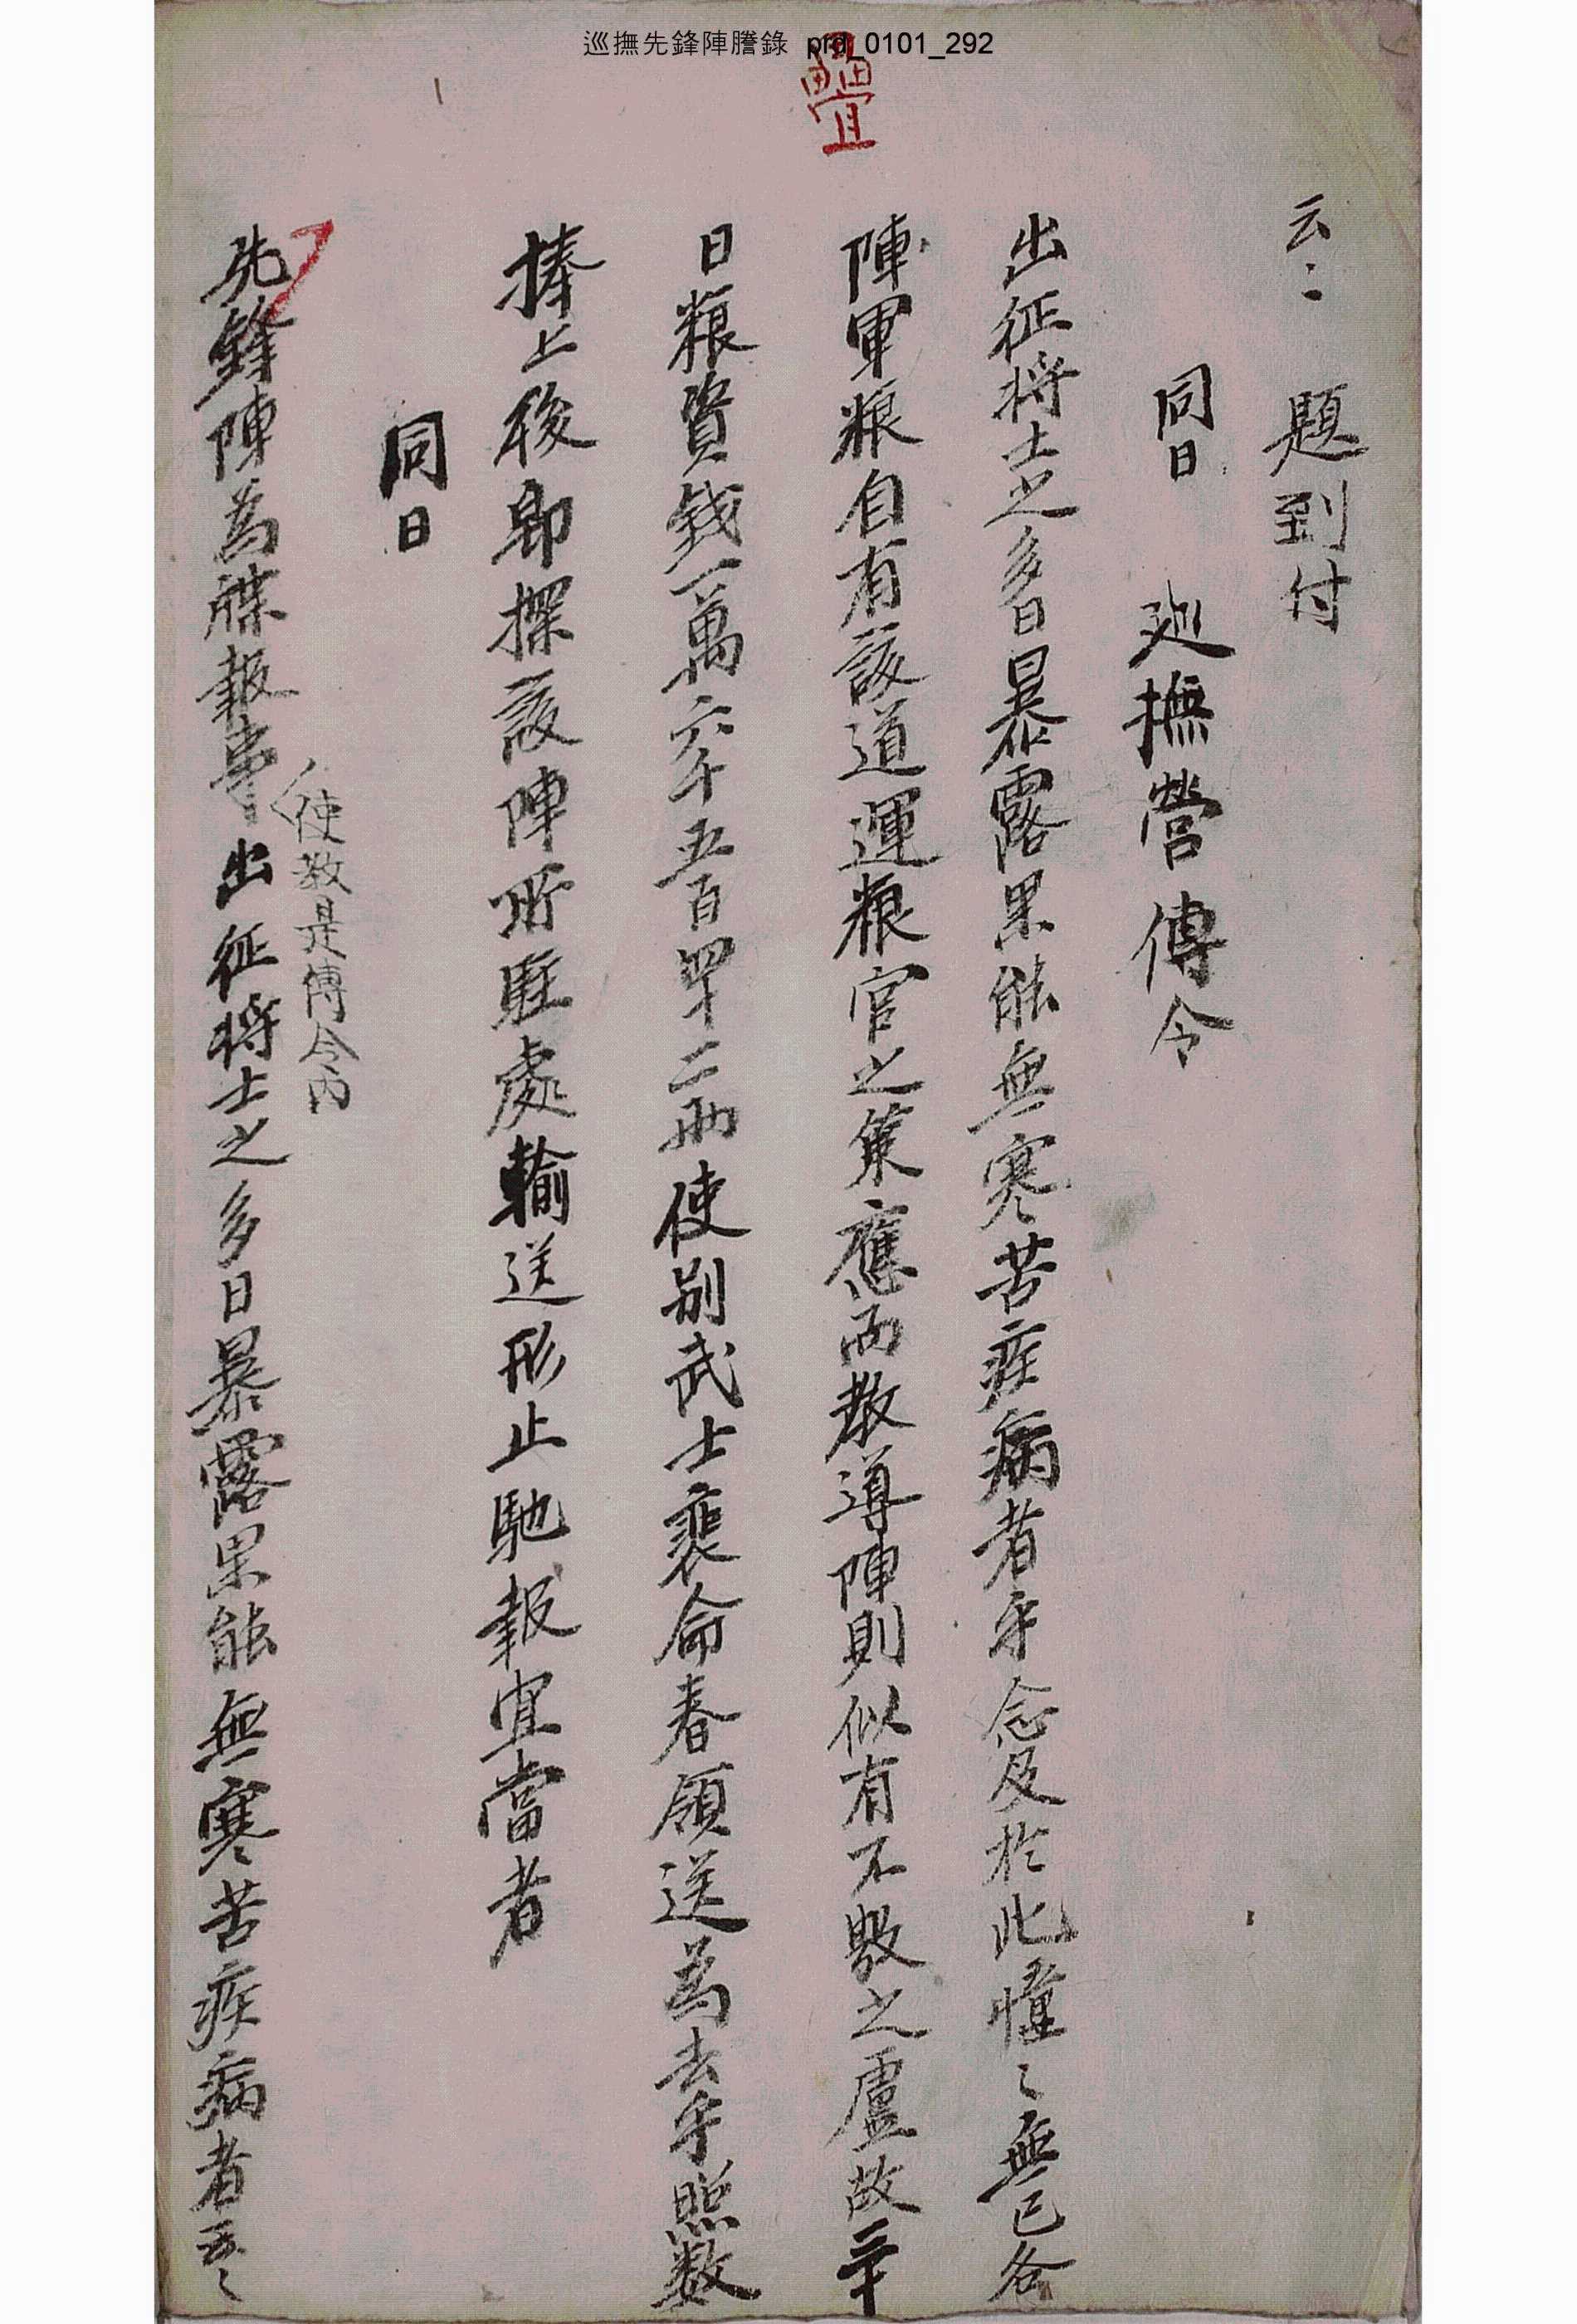 巡撫先鋒陣謄錄 prd_0101_292
疊
云〻 題到付
同日 廵撫營傳令
出征將士之多日暴露果能無寒苦疾病者乎念及於此憧〻無已各
陣軍粮自有該道運粮官之策應而教導陣則似有不敷之慮故二十
日粮資錢一萬六千五百四十二兩使別武士裵命春領送爲去乎照數
捧上後卽探該陣所駐處輸送形止馳報宜當者
同日
先鋒陣爲牒報事出征將士之多日暴露果能無寒苦疾病者云〻
使敎是傳令內